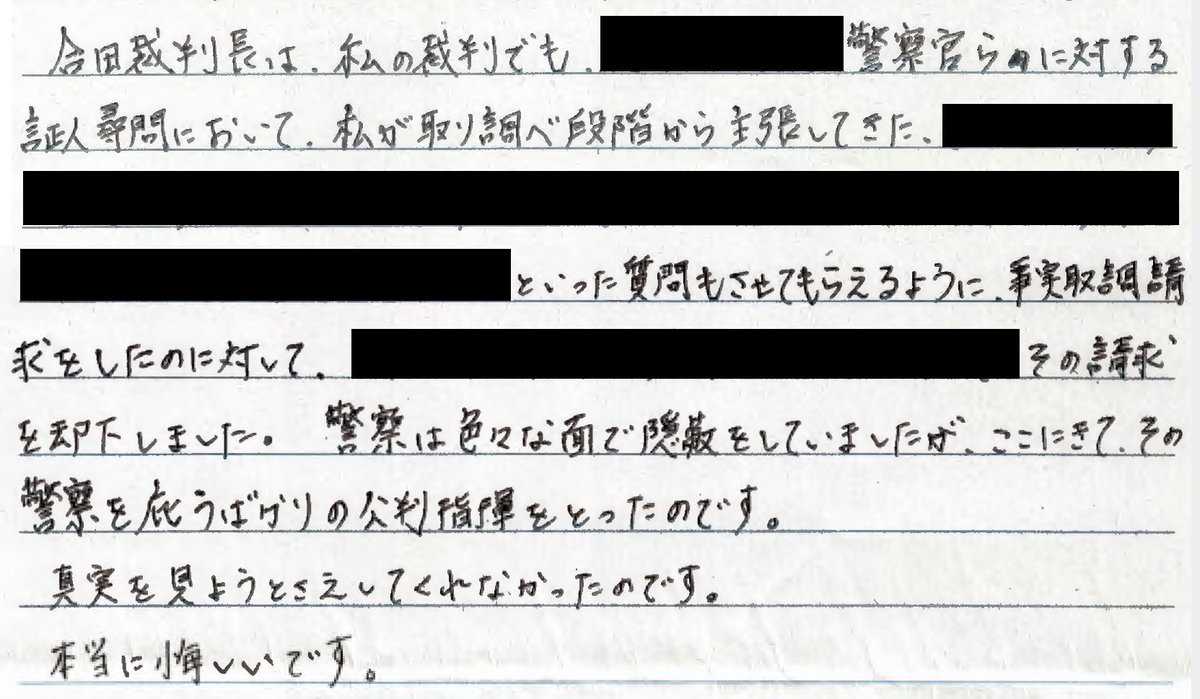 合田裁判長は、私の裁判でも、警察官らに対する
証人尋問において、私が取り調べ段階から主張してきた、
といった質問もさせてもらえるように、事実取調請
求をしたのに対して、その請求
を却下しました。 警察は色々な面で隠蔽をしていましたが、ここにきて、その
警察を庇うばかりの公判指揮をとったのです。
真実を見ようとさえしてくれなかったのです。
本当に悔しいです。